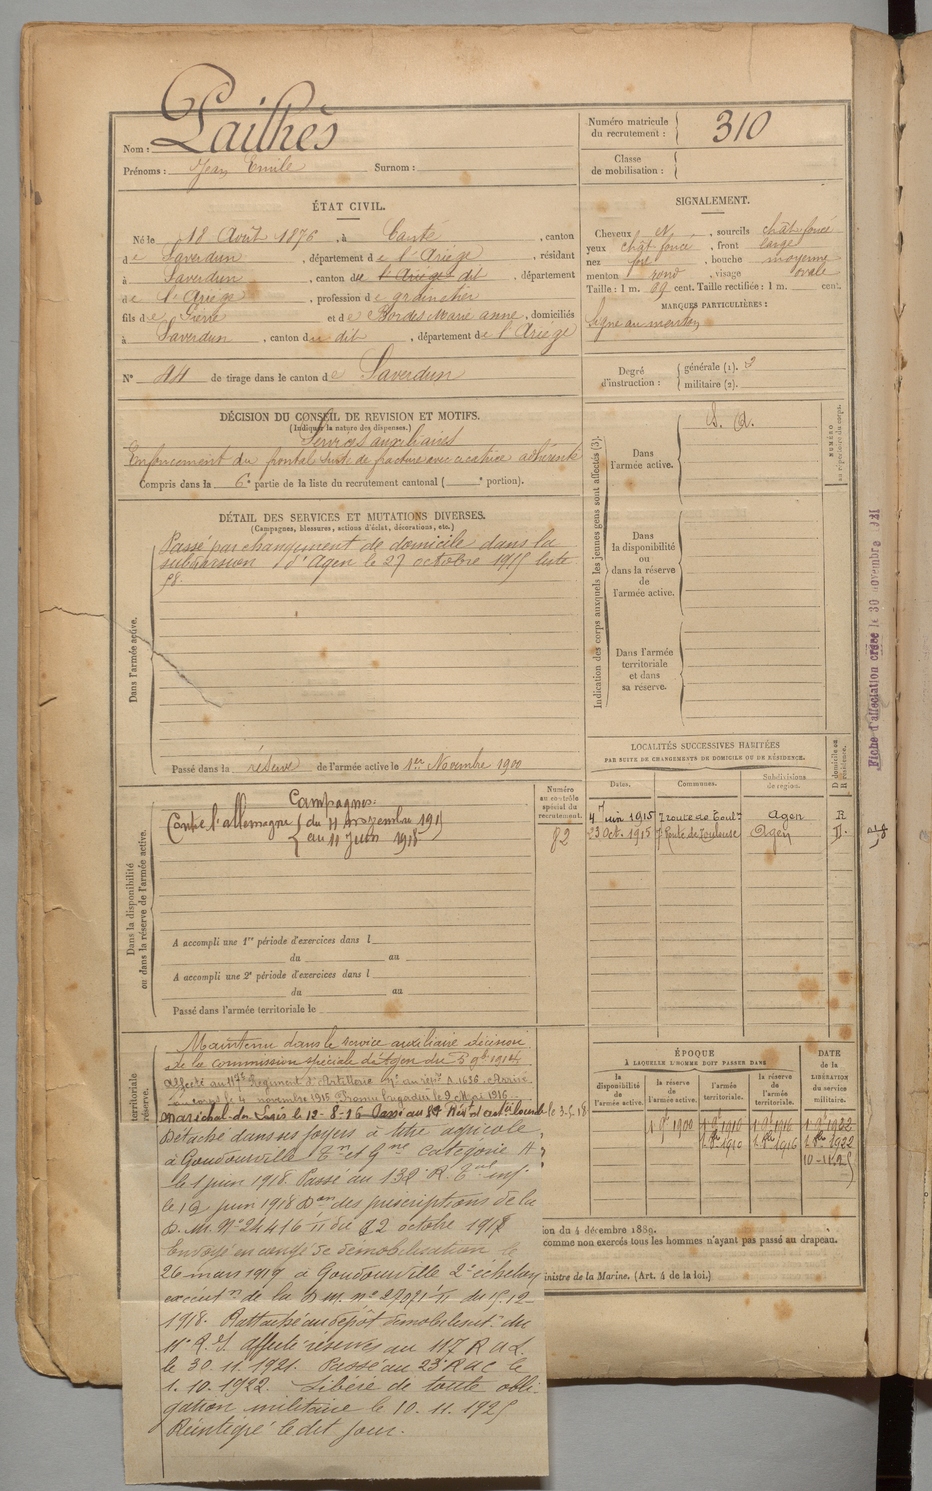 Nom : Pailhès
Prénoms : Jean Emile Surnom :
Numéro matricule du recrutement : 310
Classe de mobilisation :
ÉTAT CIVIL.
Né le 18 Août 1876, à Canté, canton
de Saverdun, département de l'Ariège, résidant
à Saverdun, canton de l'Ariège dit, département
de l'Ariège, profession de grainetier
fils de Pierre et de Bordes Marie anne, domiciliés
à Saverdun, canton du dit, département de l'Ariège
N° 44 de tirage dans le canton de Saverdun
SIGNALEMENT.
Cheveux N, sourcils chât foncé
yeux chât foncé, front large
nez fort, bouche moyenne
menton rond, visage ovale
Taille : 1 m. 69 cent. Taille rectifiée : 1 m. cent.
MARQUES PARTICULIÈRES :
Signe au menton
Degré d'instruction : générale (1). 3
militaire (2).
DÉCISION DU CONSEIL DE REVISION ET MOTIFS.
(Indiquer la nature des dispenses.)
Services auxiliaires
Enfoncement du frontal suite de fracture avec cicatrice adhérente
Compris dans la 6e partie de la liste du recrutement cantonal ( e portion).
DÉTAIL DES SERVICES ET MUTATIONS DIVERSES.
(Campagnes, blessures, actions d'éclat, décorations, etc.)
Dans l'armée active.
Passé par changement de domicile dans la
subdivision d'Agen le 27 octobre 1915 liste
58.
Passé dans la réserve de l'armée active le 1er Novembre 1900
Indication des corps auxquels les jeunes gens sont affectés (3).
NUMÉRO
au répertoire du corps.
Dans l'armée active. S. A.
Dans la disponibilité ou dans la réserve de l'armée active.
Dans l'armée territoriale et dans sa réserve.
Fiche d'affectation créée le 30 novembre
Dans la disponibilité
ou dans la réserve de l'armée active.
Campagnes :
Contre l'allemagne du 4 novembre 191
au 11 Juin 1918
Numéro au contrôle spécial du recrutement.
82
A accompli une 1re période d'exercices dans l
du au
A accompli une 2e période d'exercices dans l
du au
Passé dans l'armée territoriale le
LOCALITÉS SUCCESSIVES HABITÉES
PAR SUITE DE CHANGEMENTS DE DOMICILE OU DE RÉSIDENCE.
Dates. Communes. Subdivisions de région. D domicile ou R résidence.
4 juin 1915 7 route de Toul Agen R
23 Oct. 1915 7 Route de Toulouse Agen D.
territoriale
réserve.
Maintenu dans le service auxiliaire décision
de la commission spéciale d'Agen du 5 9bre 1914
Affecté au 117e Régiment d'Artillerie No au répre 1636. Arrivé
au corps le 4 novembre 1915. Promu Brigadier le 2 Mai 1916
Maréchal des Logis le 12-8-16 Passé au 8 Régt le 3-5-18
Détaché dans ses foyers à titre agricole
à Goudourville Tn et Gne catégorie A
le 1 juin 1918. Passé au 132e R. Tal inf
le 12 juin 1918 Don des prescriptions de la
D. M. No 24416 du 22 octobre 1917
Envoyé en congé de démobilisation le
26 mars 1919 à Goudourville 2e échelon
exécutn de la D.M. no 27071 du 15.12
1918. Rattaché au dépôt démobilisatr du
11e R.I. affecté réserves au 117 R a L
le 30 11. 1921. Passé au 23e R a C le
1. 10. 1922. Libéré de toute obli-
gation militaire le 10. 11. 1925
Réintégré le dit jour.
ÉPOQUE
À LAQUELLE L'HOMME DOIT PASSER DANS
la disponibilité de l'armée active. la réserve de l'armée active. l'armée territoriale. la réserve de l'armée territoriale.
DATE DE LA LIBÉRATION du service militaire.
1 9e 1900 1 9e 1910 1 9e 1916 1 9e 1922
1910 1916 1922
10-11-25
ion du 4 décembre 1889.
comme non exercés tous les hommes n'ayant pas passé au drapeau.
inistre de la Marine. (Art. 4 de la loi.)